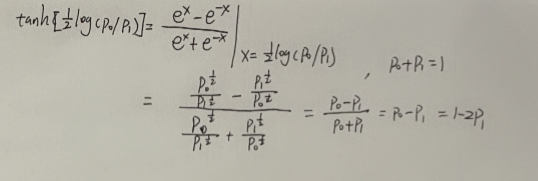 tanh[½log(p₀/p₁)] = (eˣ - e⁻ˣ)/(eˣ + e⁻ˣ) |ₓ₌½log(p₀/p₁) , p₀+p₁=1
= (p₀^½/p₁^½ - p₁^½/p₀^½)/(p₀^½/p₁^½ + p₁^½/p₀^½) = (p₀-p₁)/(p₀+p₁) = p₀-p₁ = 1-2p₁